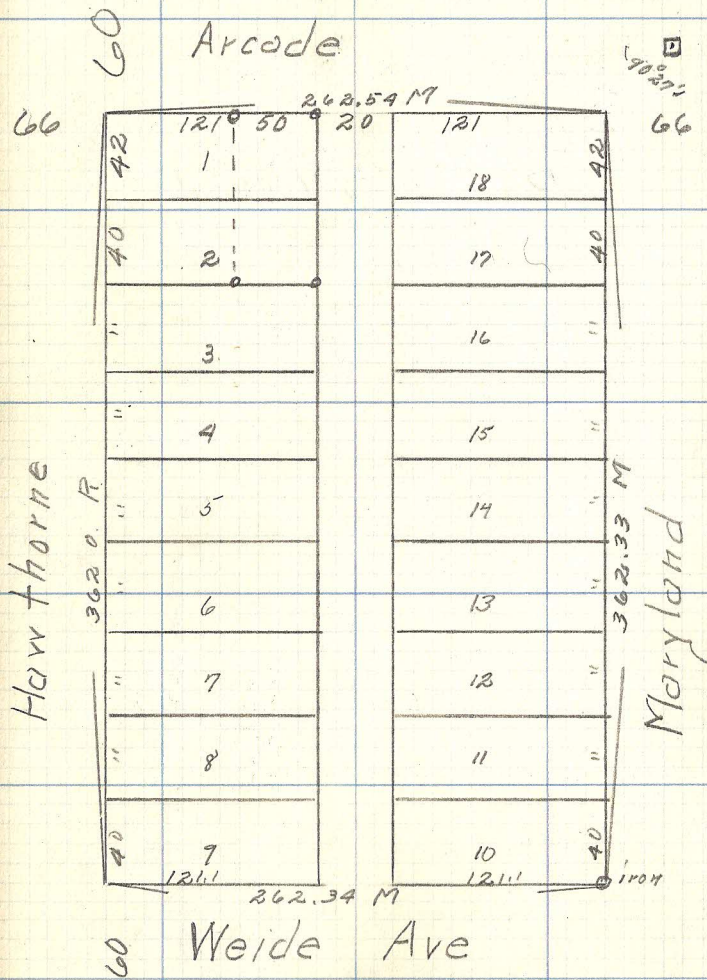 60 Arcade
90°27'
262.54 M
66 121 50 20 121 66
42 1 18 42
40 2 17 40
" 3 16 "
" 4 15 "
" 5 14 "
" 6 13 "
" 7 12 "
" 8 11 "
40 9 10 40
Hawthorne
362.0 R
362.33 M
Maryland
121.1 121.1 iron
262.34 M
60 Weide Ave